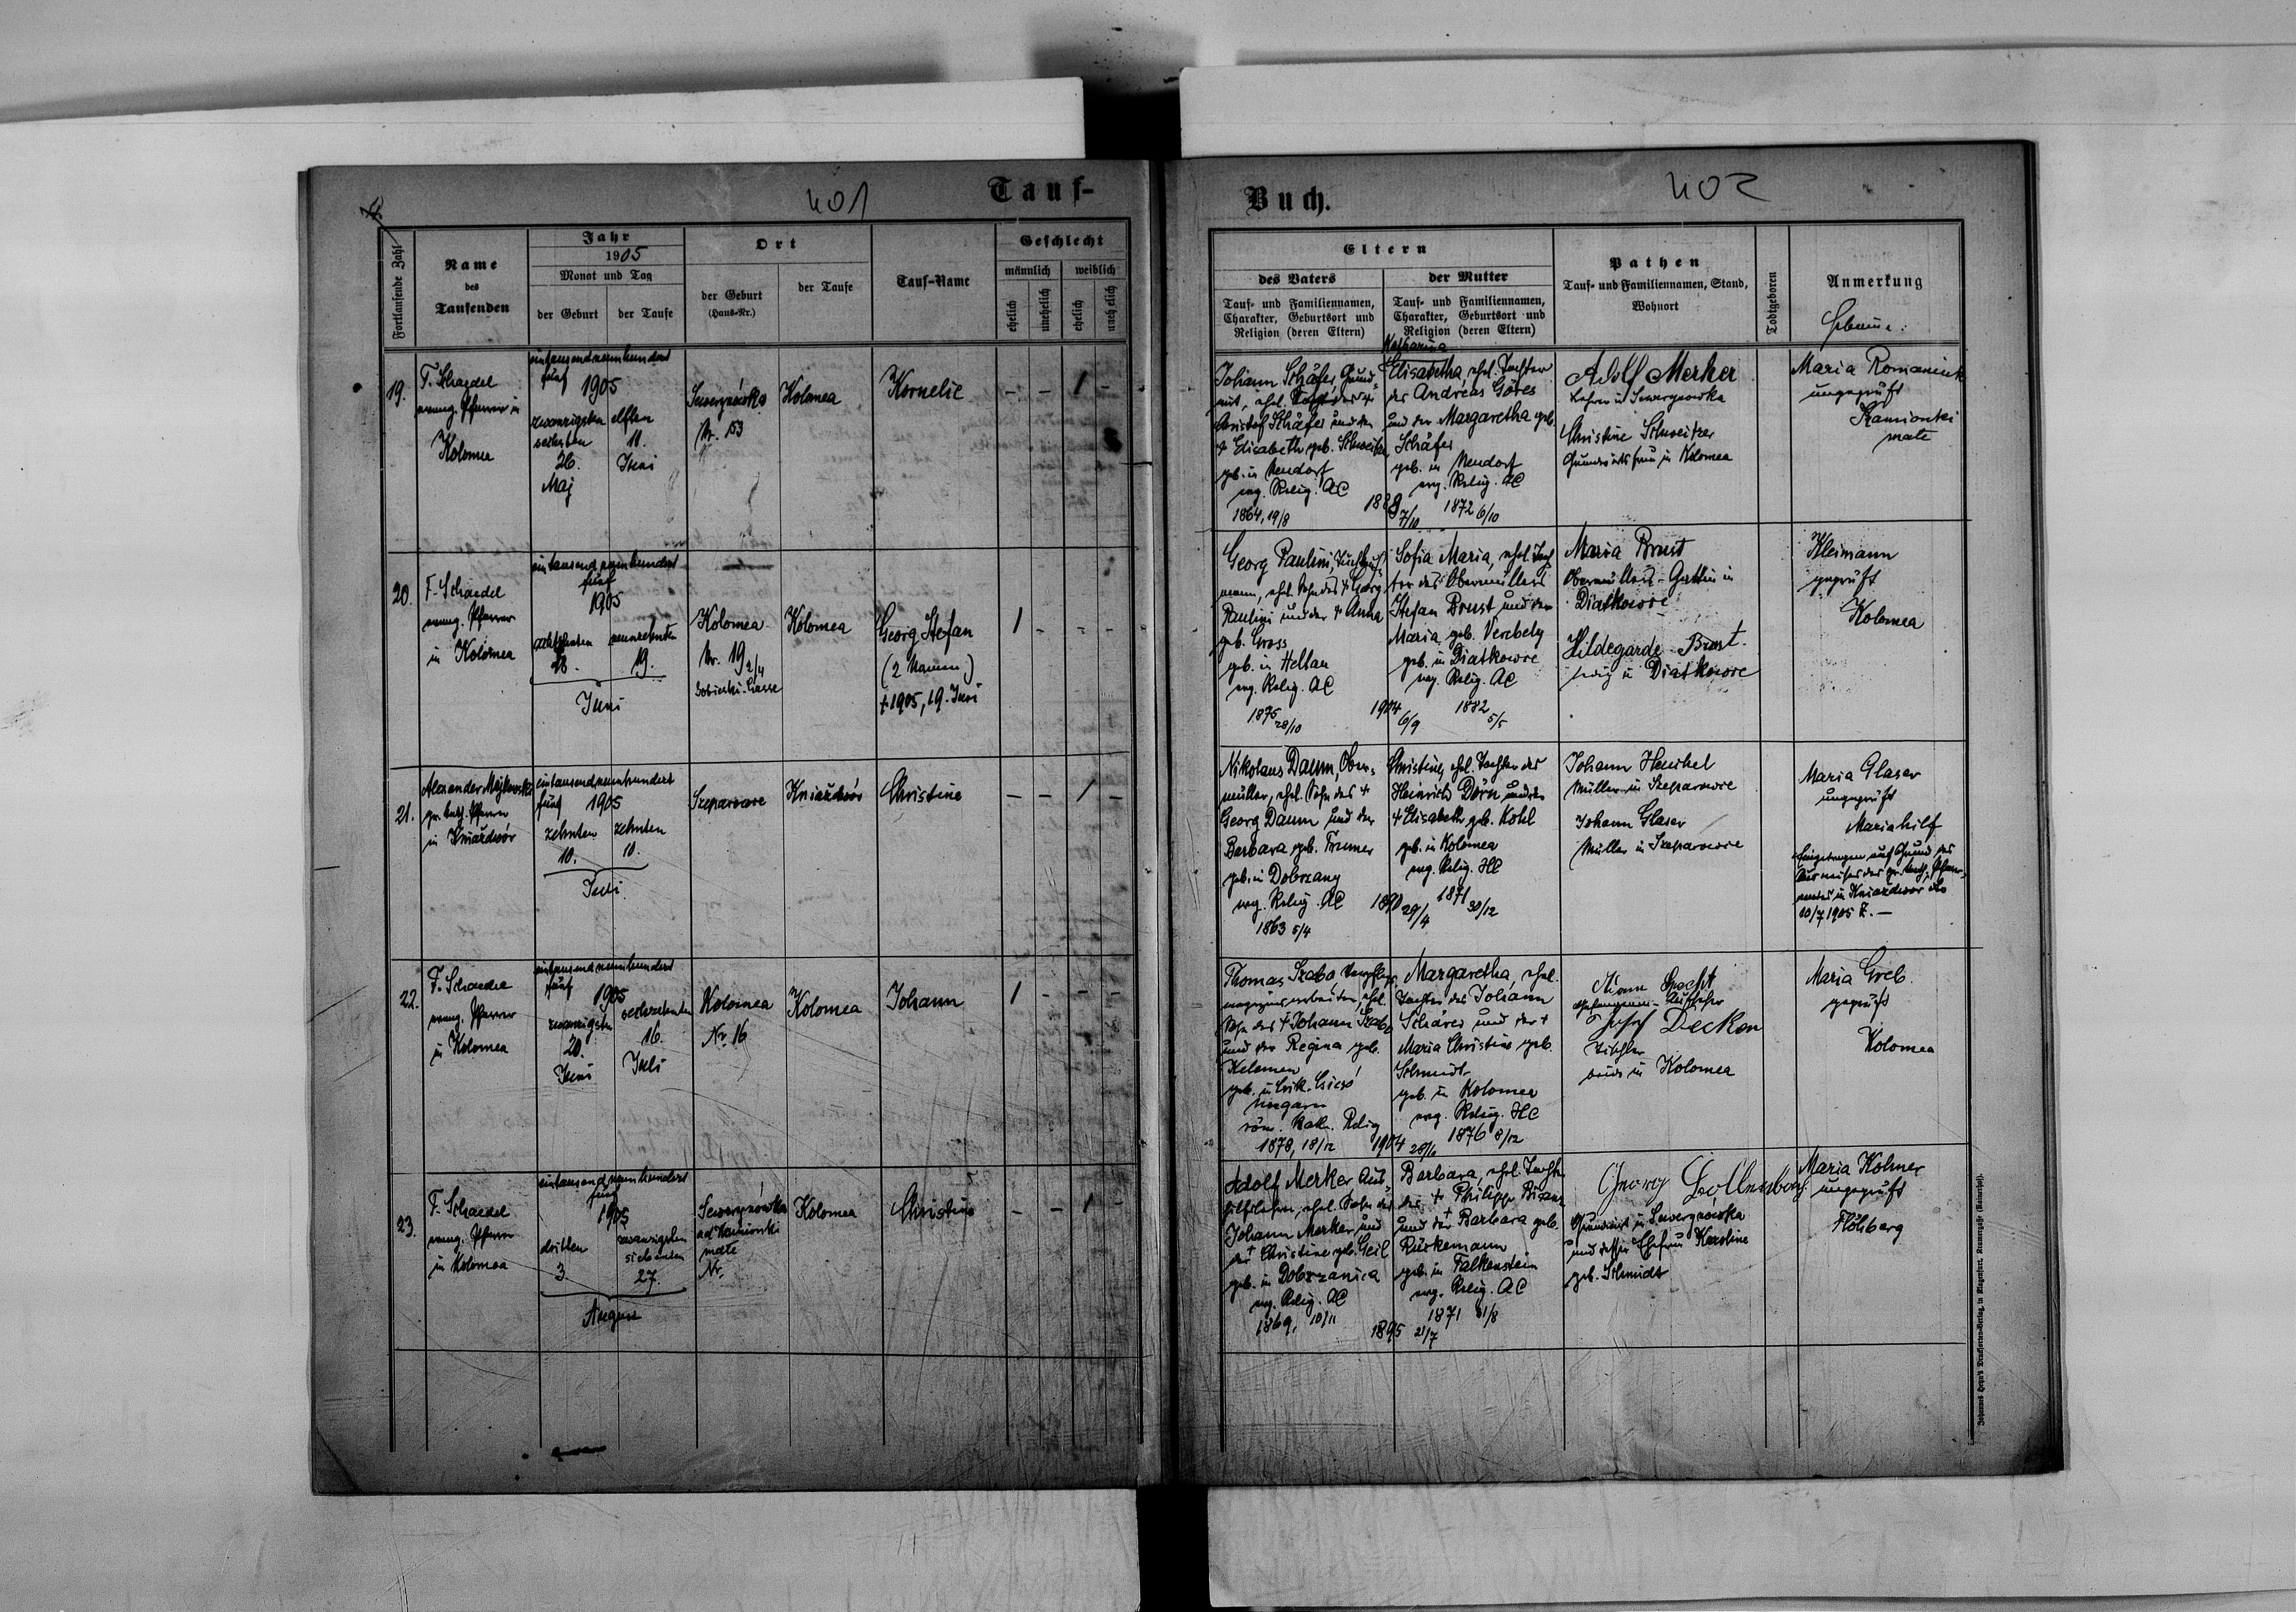 401
Tauf-
Fortlaufende Zahl
Name
des
Taufenden
Jahr
1905
Monat und Tag
der Geburt
der Taufe
Ort
der Geburt
(Haus-Nr.)
der Taufe
Tauf-Name
Geschlecht
männlich
weiblich
ehelich
unehelich
ehelich
unehelich
19.
F. Schaedel
evang. Pfarrer in
Kolomea
eintausendneunhundert
fünf 1905
zwanzigsten
sechsten
26.
Maj
elften
11.
Juni
Sewerynówka
Nr. 153
Kolomea
Kornelie
- - 1 -
20.
F. Schaedel
evang. Pfarrer
in Kolomea
eintausend neunhundert
fünf
1905
achtzehnten
18.
neunzehnten
19.
Juni
Kolomea
Nr. 19 2/4
Sobieski-Gasse
Kolomea
Georg Stefan
(2 Namen)
+ 1905, 19. Juni
1 - - -
21.
Alexander
gr. kath. Pfarrer
in Kniaźdwór
eintausendneunhundert
fünf 1905
zehnten
10.
zehnten
10.
Juli
Szeparowce
Kniaźdwór
Christine
- - 1 -
22.
F. Schaedel
evang. Pfarrer
in Kolomea
eintausend neunhundert
fünf
1905
zwanzigsten
20.
Juni
sechzehnten
16.
Juli
Kolomea
Nr. 16
Kolomea
Johann
1 - - -
23.
F. Schaedel
evang. Pfarrer
in Kolomea
eintausend neunhundert
fünf
1905
dritten
3
zwanzigsten
siebenten
27.
August
Sewerynówka
ad Kamionki
małe
Nr.
Kolomea
Christine
- - 1 -
Buch.
402
Eltern
des Vaters
Tauf- und Familiennamen,
Charakter, Geburtsort und
Religion (deren Eltern)
der Mutter
Tauf- und Familiennamen,
Charakter, Geburtsort und
Religion (deren Eltern)
Pathen
Tauf- und Familiennamen, Stand,
Wohnort
Todtgeboren
Anmerkung
Hebamme.
Johann Schäfer, Grund-
wirt, ehel. Sohn des +
Christof Schäfer und der
+ Elisabeth geb. Schweitzer
geb. in Neudorf
evg. Relig. AC
1864, 19/8
1889 7/10
Katharina
Elisabetha, ehel. Tochter
des Andreas Göres
und der Margaretha geb.
Schäfer
geb. in Neudorf
evg. Relig. AC
1872 6/10
Adolf Merker
Lehrer in Sewerynowka
Christine Schweitzer
Grundwirtsfrau in Kolomea
Maria Romaniuk
ungeprüft
Kamionki
małe
Georg Paulini,
mann, ehel. Sohn des + Georg
Paulini und der + Anna
geb. Gross
geb. in Heltau
evg. Relig. AC
1875 28/10
1904 6/9
Sofia Maria, ehel. Toch
ter des Obermüllers
Stefan Brust und der
Maria geb. Verebely
geb. in Diatkowce
evg. Relig. AC
1882 5/5
Maria Brust
Obermüllers-Gattin in
Diatkowce
Hildegarde Brust.
ledig in Diatkowce
Kleimann
geprüft
Kolomea
Nikolaus Daum, Ober-
müller, ehel. Sohn des +
Georg Daum und der
Barbara geb. Frumer
geb. in Dobrzany
evg. Relig. AC
1863 5/4
1890 29/4
Christine, ehel. Tochter des
Heinrich Dörn und der
+ Elisabeth geb. Kohl
geb. in Kolomea
evg. Relig. HC
1871 30/12
Johann Henrhel
Müller in Szeparowce
Johann Glaser
Müller in Szeparowce
Maria Glaser
ungeprüft
Mariahilf
Eingetragen auf Grund des
Ausweises des gr. kath. Pfarr-
amtes in Kniaźdwor dto
10/7 1905 Z. —
Thomas Szabo,
ehel.
Sohn des + Johann Szabo
und der Regina geb.
Kelemen
geb. in Csik-Csicsó
Ungarn
röm. kath. Relig
1878, 18/12
1904
Margaretha, ehel.
Tochter des Johann
Schärer und der +
Maria Christine geb.
Schmidt
geb. in Kolomea
evg. Relig. HC
1876 8/12
Specht
Gefangenen-Aufseher
Josef Decker
Tischler
beide in Kolomea
Maria Greb
geprüft
Kolomea
Adolf Merker Aus-
hilfslehrer, ehel. Sohn des
Johann Merker und
der + Christine geb. Geil
geb. in Dobrzanica
evg. Relig. AC
1869, 10/11
1895 21/7
Barbara, ehel. Tochter
des + Philipp Bisanz
und der + Barbara geb.
Rückemann
geb. in Falkenstein
evg. Relig. AC
1871 31/8
Georg
Grundwirt in Sewerynowka
und dessen Ehefrau Karoline
geb. Schmidt
Maria Kohner
ungeprüft
Flöhberg